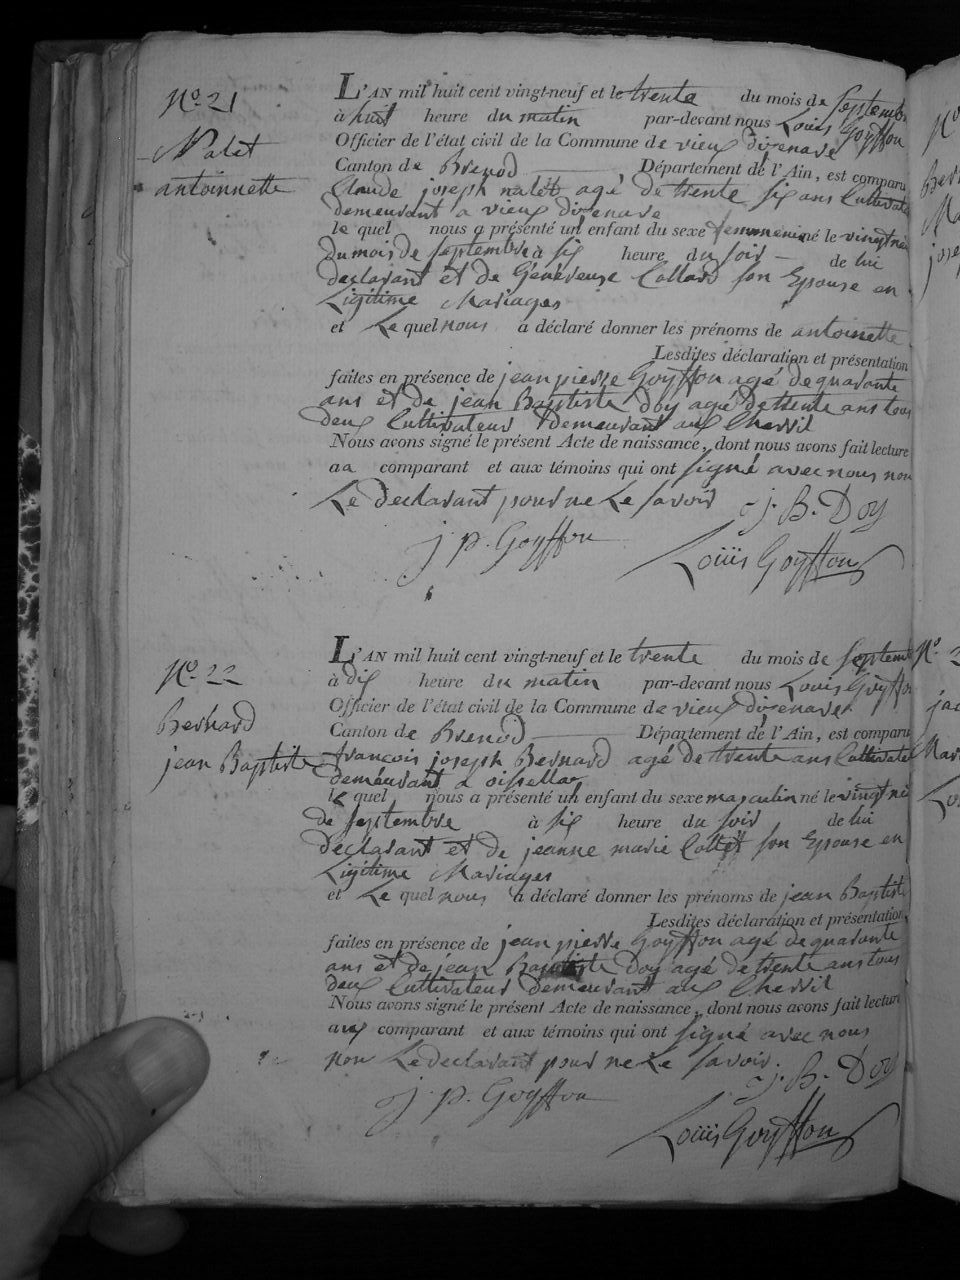 No. 21
Nalet
antoinnette
L'AN mil huit cent vingt-neuf et le trente du mois de septembre
à huit heure du matin par-devant nous Louis Goyffon
Officier de l'état civil de la Commune de vieux disenave
Canton de Brenod Département de l'Ain, est comparu
Claude joseph nalet agé de trente six ans Cultivate
demeurant a vieux disenave
le quel nous a présenté un enfant du sexe femmenin né le vingt nei
du mois de septembre à six heure du soir de lui
declarant et de Genevieuse Collard son Epouse en
Ligitime Mariages
et Le quel nous a déclaré donner les prénoms de antoinette
Lesdites déclaration et présentation
faites en présence de jean pierre Goyffon agé de quarante
ans et de jean Baptiste Doy agé de trente ans tous
deux Cultivateur demeurant aux Chevril
Nous avons signé le présent Acte de naissance, dont nous avons fait lecture
aa comparant et aux témoins qui ont signé avec nous non
Le declarant pour ne Le savoir
j. B. Doy
j. p. Goyffon
Louis Goyffon
No. 22
Bernard
jean Baptiste
L'AN mil huit cent vingt-neuf et le trente du mois de septemb
à dix heure du matin par-devant nous Louis Goyffon
Officier de l'état civil de la Commune de vieux disenave
Canton de Brenod Département de l'Ain, est comparu
francois joseph Bernard agé de trente ans Cultivate
demeurant a oissellaz
le quel nous a présenté un enfant du sexe masculin né le vingt nei
de septembre à six heure du soir de lui
declarant et de jeanne marie Collet son Epouse en
Ligitime Mariages
et Le quel nous a déclaré donner les prénoms de jean Baptiste
Lesdites déclaration et présentation
faites en présence de jean pierre Goyffon agé de quarante
ans et de jean Baptiste Doy agé de trente ans tous
deux Cultivateur demeurant aux Chevril
Nous avons signé le présent Acte de naissance, dont nous avons fait lecture
aux comparant et aux témoins qui ont signé avec nous
non Le declarant pour ne Le savoir
j. B. Doy
j. p. Goyffon
Louis Goyffon